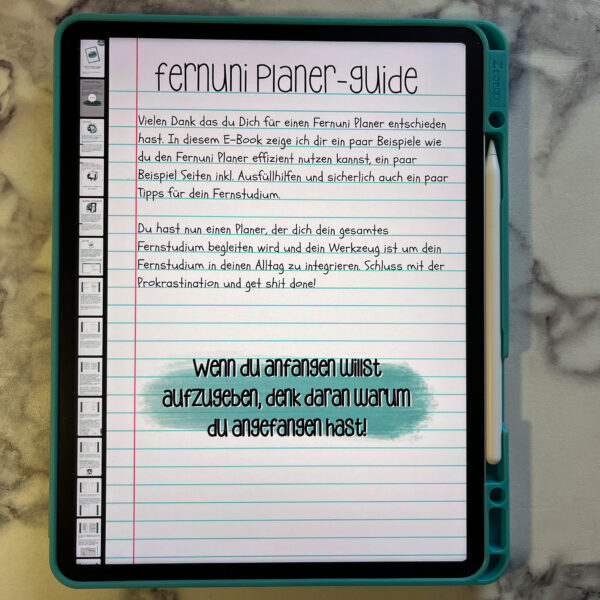 Fernuni Planer-Guide
Vielen Dank das du Dich für einen Fernuni Planer entschieden
hast. In diesem E-Book zeige ich dir ein paar Beispiele wie
du den Fernuni Planer effizient nutzen kannst, ein paar
Beispiel Seiten inkl. Ausfüllhilfen und sicherlich auch ein paar
Tipps für dein Fernstudium.
Du hast nun einen Planer, der dich dein gesamtes
Fernstudium begleiten wird und dein Werkzeug ist um dein
Fernstudium in deinen Alltag zu integrieren. Schluss mit der
Prokrastination und get shit done!
Wenn du anfangen willst
aufzugeben, denk daran warum
du angefangen hast!